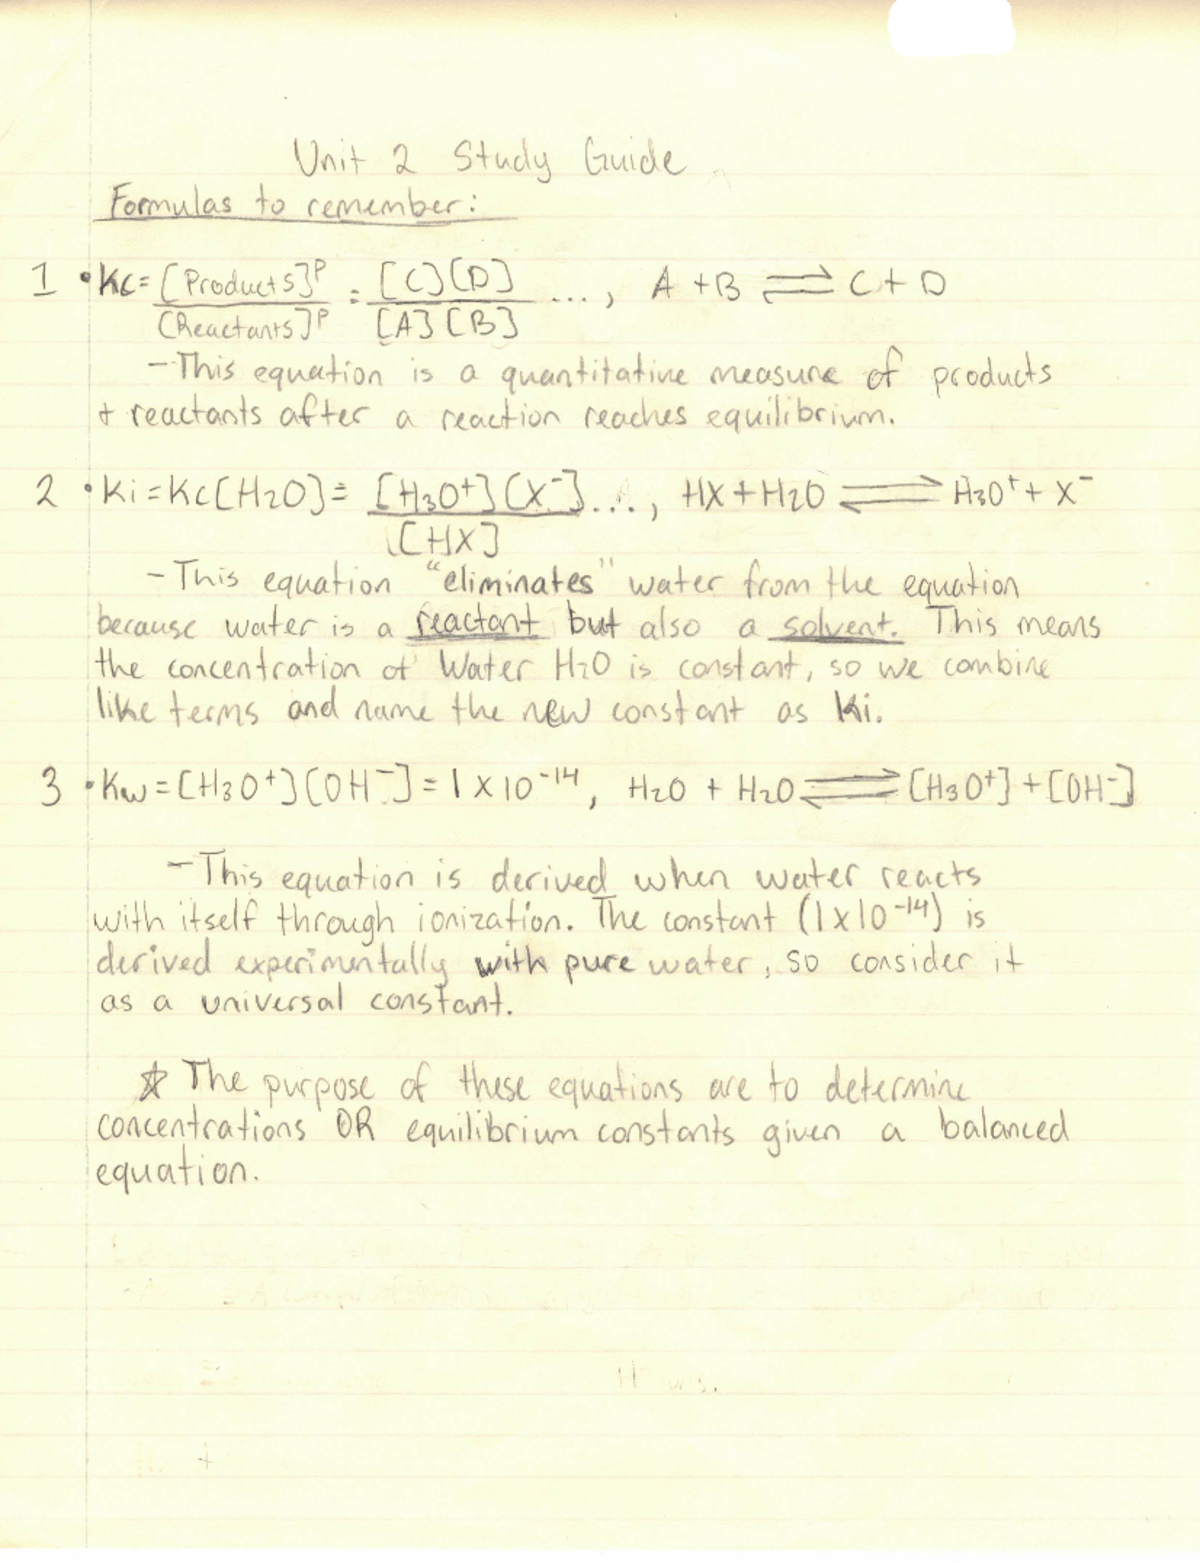 Unit 2 Study Guide
Formulas to remember:
1 • Kc = [Products]ᴾ / [Reactants]ᴾ = [C][D] / [A][B] ..., A + B ⇌ C + D
- This equation is a quantitative measure of products
+ reactants after a reaction reaches equilibrium.
2 • Ki = Kc[H₂O] = [H₃O⁺][X⁻] / [HX] ..., HX + H₂O ⇌ H₃O⁺ + X⁻
- This equation "eliminates" water from the equation
because water is a reactant but also a solvent. This means
the concentration of Water H₂O is constant, so we combine
like terms and name the new constant as Ki.
3 • Kw = [H₃O⁺][OH⁻] = 1 x 10⁻¹⁴, H₂O + H₂O ⇌ [H₃O⁺] + [OH⁻]
- This equation is derived when water reacts
with itself through ionization. The constant (1x10⁻¹⁴) is
derived experimentally with pure water, so consider it
as a universal constant.
☆ The purpose of these equations are to determine
concentrations OR equilibrium constants given a balanced
equation.